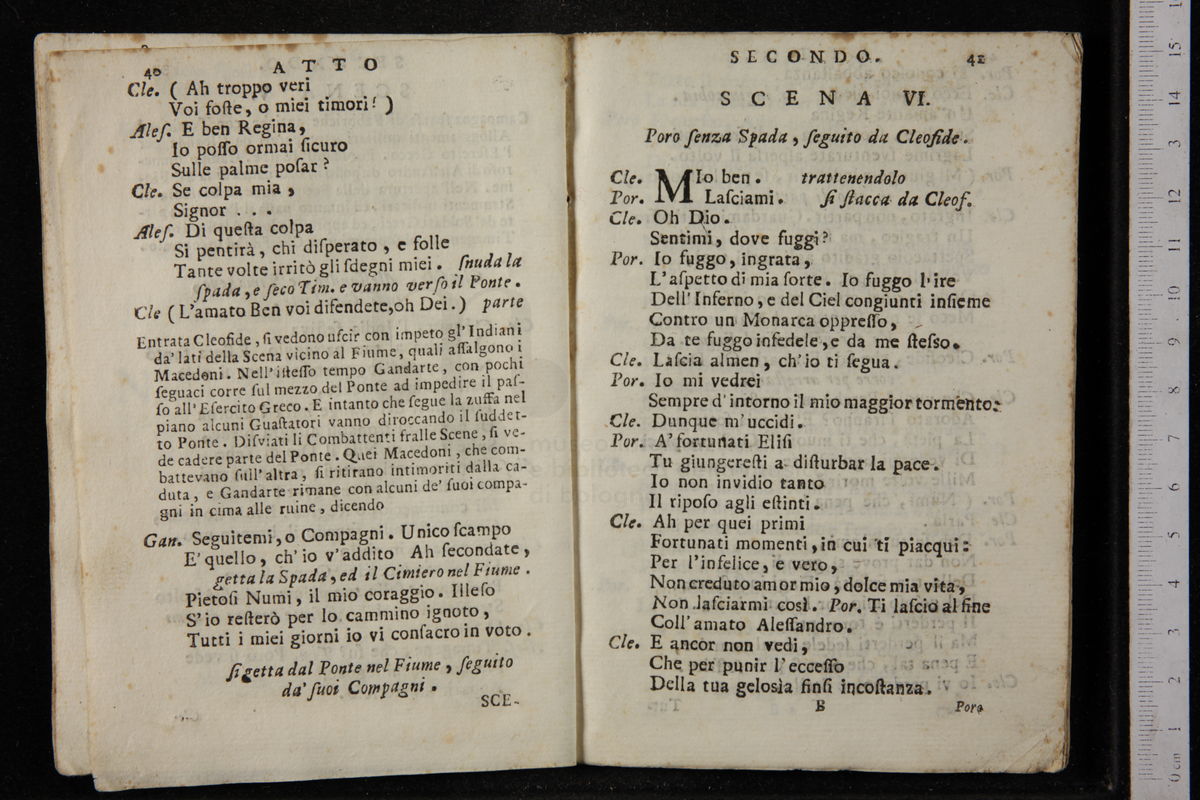 40 ATTO
Cle. ( Ah troppo veri
Voi foſte, o miei timori! )
Aleſ. E ben Regina,
Io poſſo ormai ſicuro
Sulle palme poſar?
Cle. Se colpa mia,
Signor . . .
Aleſ. Di queſta colpa
Si pentirà, chi diſperato, e folle
Tante volte irritò gli ſdegni miei. ſnuda la
ſpada, e ſeco Tim. e vanno verſo il Ponte.
Cle ( L'amato Ben voi difendete, oh Dei. ) parte
Entrata Cleofide, ſi vedono uſcir con impeto gl' Indiani
da' lati della Scena vicino al Fiume, quali aſſalgono i
Macedoni. Nell' iſteſſo tempo Gandarte, con pochi
ſeguaci corre ſul mezzo del Ponte ad impedire il paſ-
ſo all' Eſercito Greco. E intanto che ſegue la zuffa nel
piano alcuni Guaſtatori vanno diroccando il ſuddet-
to Ponte. Diſviati li Combattenti fralle Scene, ſi ve-
de cadere parte del Ponte. Quei Macedoni, che com-
battevano ſull' altra, ſi ritirano intimoriti dalla ca-
duta, e Gandarte rimane con alcuni de' ſuoi compa-
gni in cima alle ruine, dicendo
Gan. Seguitemi, o Compagni. Unico ſcampo
E' quello, ch' io v' addito Ah ſecondate,
getta la Spada, ed il Cimiero nel Fiume.
Pietoſi Numi, il mio coraggio. Illeſo
S' io reſterò per lo cammino ignoto,
Tutti i miei giorni io vi conſacro in voto.
ſi getta dal Ponte nel Fiume, ſeguito
da' ſuoi Compagni.
SCE-
SECONDO. 41
SCENA VI.
Poro ſenza Spada, ſeguito da Cleofide.
Cle. MIo ben. trattenendolo
Por. Laſciami. ſi ſtacca da Cleoſ.
Cle. Oh Dio.
Sentimi, dove fuggi?
Por. Io fuggo, ingrata,
L' aſpetto di mia ſorte. Io fuggo l' ire
Dell' Inferno, e del Ciel congiunti inſieme
Contro un Monarca oppreſſo,
Da te fuggo infedele, e da me ſteſso.
Cle. Laſcia almen, ch' io ti ſegua.
Por. Io mi vedrei
Sempre d' intorno il mio maggior tormento:
Cle. Dunque m' uccidi.
Por. A' fortunati Eliſi
Tu giungereſti a diſturbar la pace.
Io non invidio tanto
Il ripoſo agli eſtinti.
Cle. Ah per quei primi
Fortunati momenti, in cui ti piacqui:
Per l' infelice, e vero,
Non creduto amor mio, dolce mia vita,
Non laſciarmi così. Por. Ti laſcio al fine
Coll' amato Aleſſandro.
Cle. E ancor non vedi,
Che per punir l' ecceſſo
Della tua geloſia finſi incoſtanza.
B Poro